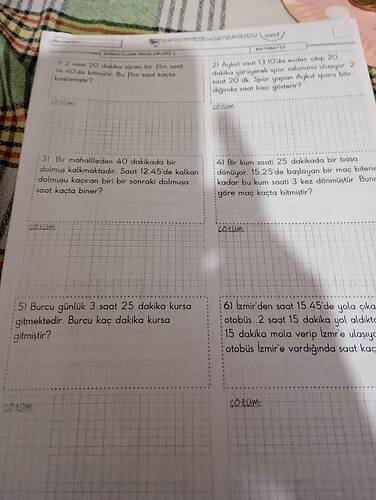 MATEMATİK
ZAMAN ÖLÇME PROBLEMLERİ 1
1) 2 saat 20 dakika süren bir film saat
14.40'da bitmiştir. Bu film saat kaçta
başlamıştır?
ÇÖZÜM:
2) Aykut saat 13.10'da evden çıkıp 20
dakika yürüyerek spor salonuna ulaşıyor. 2
saat 20 dk. Spor yapan Aykut sporu bitir-
diğinde saat kaçı gösterir?
ÇÖZÜM:
3) Bir mahallleden 40 dakikada bir
dolmuş kalkmaktadır. Saat 12.45'de kalkan
dolmuşu kaçıran biri bir sonraki dolmuşa
saat kaçta biner?
ÇÖZÜM:
4) Bir kum saati 25 dakikada bir başa
dönüyor. 15.25'de başlayan bir maç bitene
kadar bu kum saati 3 kez dönmüştür. Buna
göre maç kaçta bitmiştir?
ÇÖZÜM:
5) Burcu günlük 3 saat 25 dakika kursa
gitmektedir. Burcu kaç dakika kursa
gitmiştir?
ÇÖZÜM:
6) İzmir'den saat 15.45'de yola çıka
otobüs, 2 saat 15 dakika yol aldıkta
15 dakika mola verip İzmr'e ulaşıyo
otobüs İzmir'e vardığında saat kaç
ÇÖZÜM: